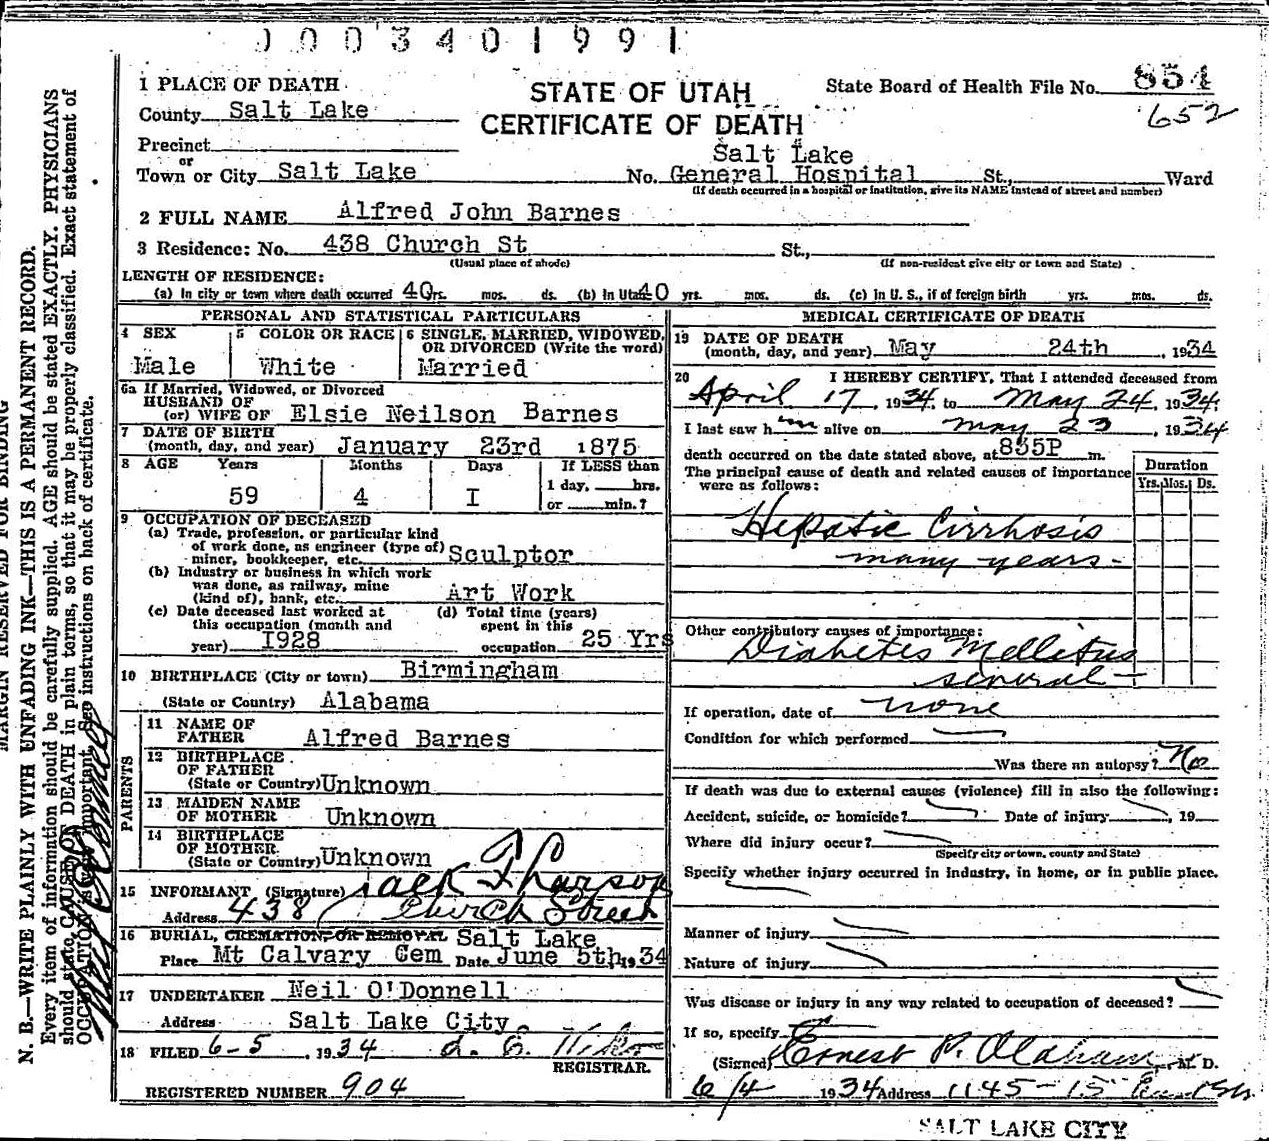 0003401991
1 PLACE OF DEATH
STATE OF UTAH
CERTIFICATE OF DEATH
State Board of Health File No. 854
652
County Salt Lake
Precinct
or
Town or City Salt Lake No. Salt Lake General Hospital St., Ward
(If death occurred in a hospital or institution, give its NAME instead of street and number)
2 FULL NAME Alfred John Barnes
3 Residence: No. 438 Church St St.,
(Usual place of abode) (If non-resident give city or town and State)
LENGTH OF RESIDENCE:
(a) In city or town where death occurred 40 yrs. mos. ds. (b) In Utah 40 yrs. mos. ds. (c) In U. S., if of foreign birth yrs. mos. ds.
PERSONAL AND STATISTICAL PARTICULARS
4 SEX Male
5 COLOR OR RACE White
6 SINGLE, MARRIED, WIDOWED, OR DIVORCED (Write the word) Married
6a If Married, Widowed, or Divorced
HUSBAND OF
(or) WIFE OF Elsie Neilson Barnes
7 DATE OF BIRTH
(month, day, and year) January 23rd 1875
8 AGE Years Months Days If LESS than
1 day, hrs.
59 4 I or min.?
9 OCCUPATION OF DECEASED
(a) Trade, profession, or particular kind
of work done, as engineer (type of)
miner, bookkeeper, etc. Sculptor
(b) Industry or business in which work
was done, as railway, mine
(kind of), bank, etc. Art Work
(c) Date deceased last worked at
this occupation (month and
year) I928
(d) Total time (years)
spent in this
occupation 25 Yrs
10 BIRTHPLACE (City or town) Birmingham
(State or Country) Alabama
PARENTS
11 NAME OF
FATHER Alfred Barnes
12 BIRTHPLACE
OF FATHER
(State or Country) Unknown
13 MAIDEN NAME
OF MOTHER Unknown
14 BIRTHPLACE
OF MOTHER
(State or Country) Unknown
15 INFORMANT (Signature) Jack
Address 438 Church Street
16 BURIAL, CREMATION, OR REMOVAL Salt Lake
Place Mt Calvary Cem Date June 5th, 1934
17 UNDERTAKER Neil O'Donnell
Address Salt Lake City.
18 FILED 6-5, 1934
REGISTRAR.
REGISTERED NUMBER 904
MEDICAL CERTIFICATE OF DEATH
19 DATE OF DEATH
(month, day, and year) May 24th, 1934
20 I HEREBY CERTIFY, That I attended deceased from
April 17, 1934, to May 24, 1934.
I last saw him alive on May 23, 1934
death occurred on the date stated above, at 835P m.
The principal cause of death and related causes of importance
were as follows:
Duration
Yrs. Mos. Ds.
Hepatic Cirrhosis
many years-
Other contributory causes of importance:
Diabetes Mellitus
several -
If operation, date of none
Condition for which performed
Was there an autopsy? No
If death was due to external causes (violence) fill in also the following:
Accident, suicide, or homicide? Date of injury, 19
Where did injury occur?
(Specify city or town, county and State)
Specify whether injury occurred in industry, in home, or in public place.
Manner of injury
Nature of injury
Was disease or injury in any way related to occupation of deceased?
If so, specify
(Signed) Ernest P. Oldham, M. D.
6/4 1934 Address 1145-15
SALT LAKE CITY
MARGIN RESERVED FOR BINDING
N. B.—WRITE PLAINLY WITH UNFADING INK—THIS IS A PERMANENT RECORD.
Every item of information should be carefully supplied. AGE should be stated EXACTLY. PHYSICIANS
should state CAUSE OF DEATH in plain terms, so that it may be properly classified. Exact statement of
OCCUPATION is very important. See instructions on back of certificate.